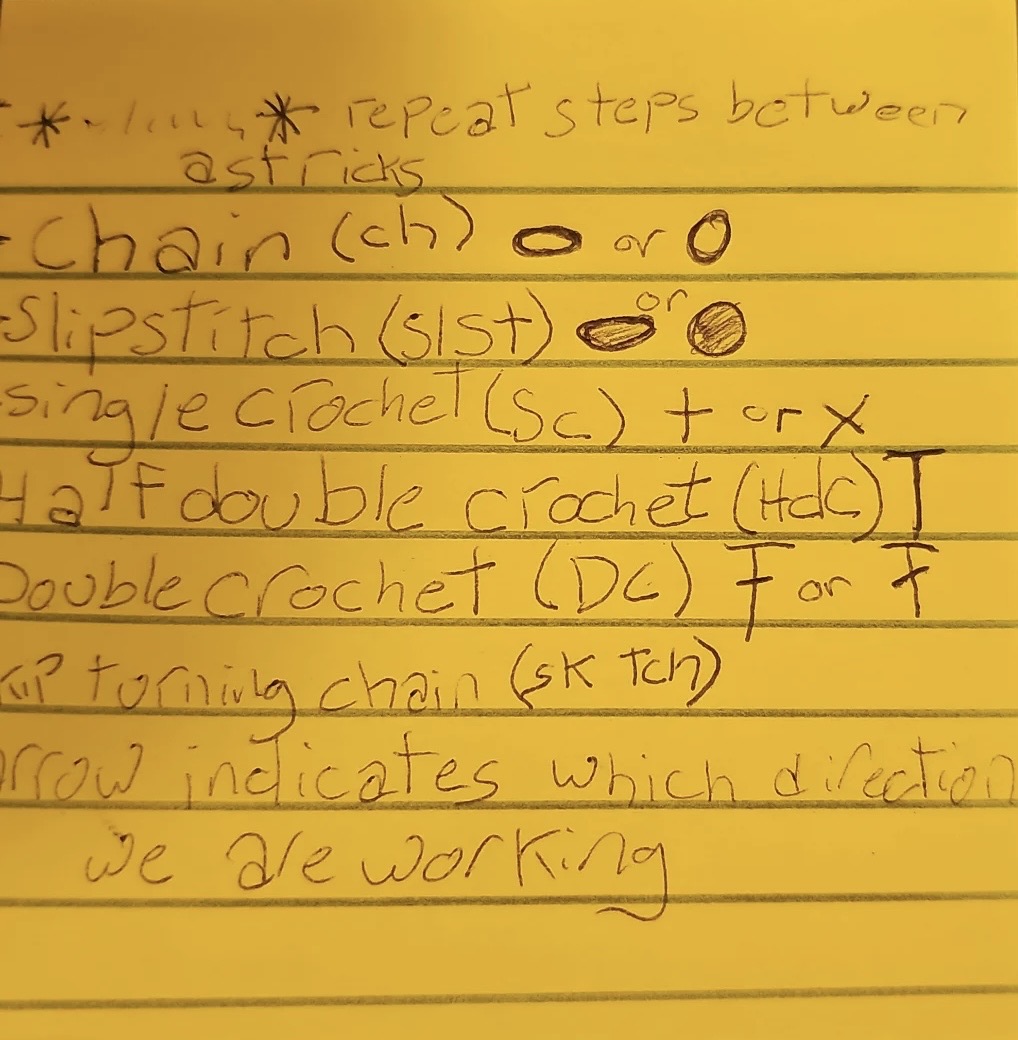 * * repeat steps between
astricks
-Chain (ch) 0 or 0
-Slipstitch (slst) or
single crochet (Sc) + or x
Half double crochet (Hdc) T
Double crochet (DC) Ŧ or Ŧ
turning chain (sk Tch)
arrow indicates which direction
we are working